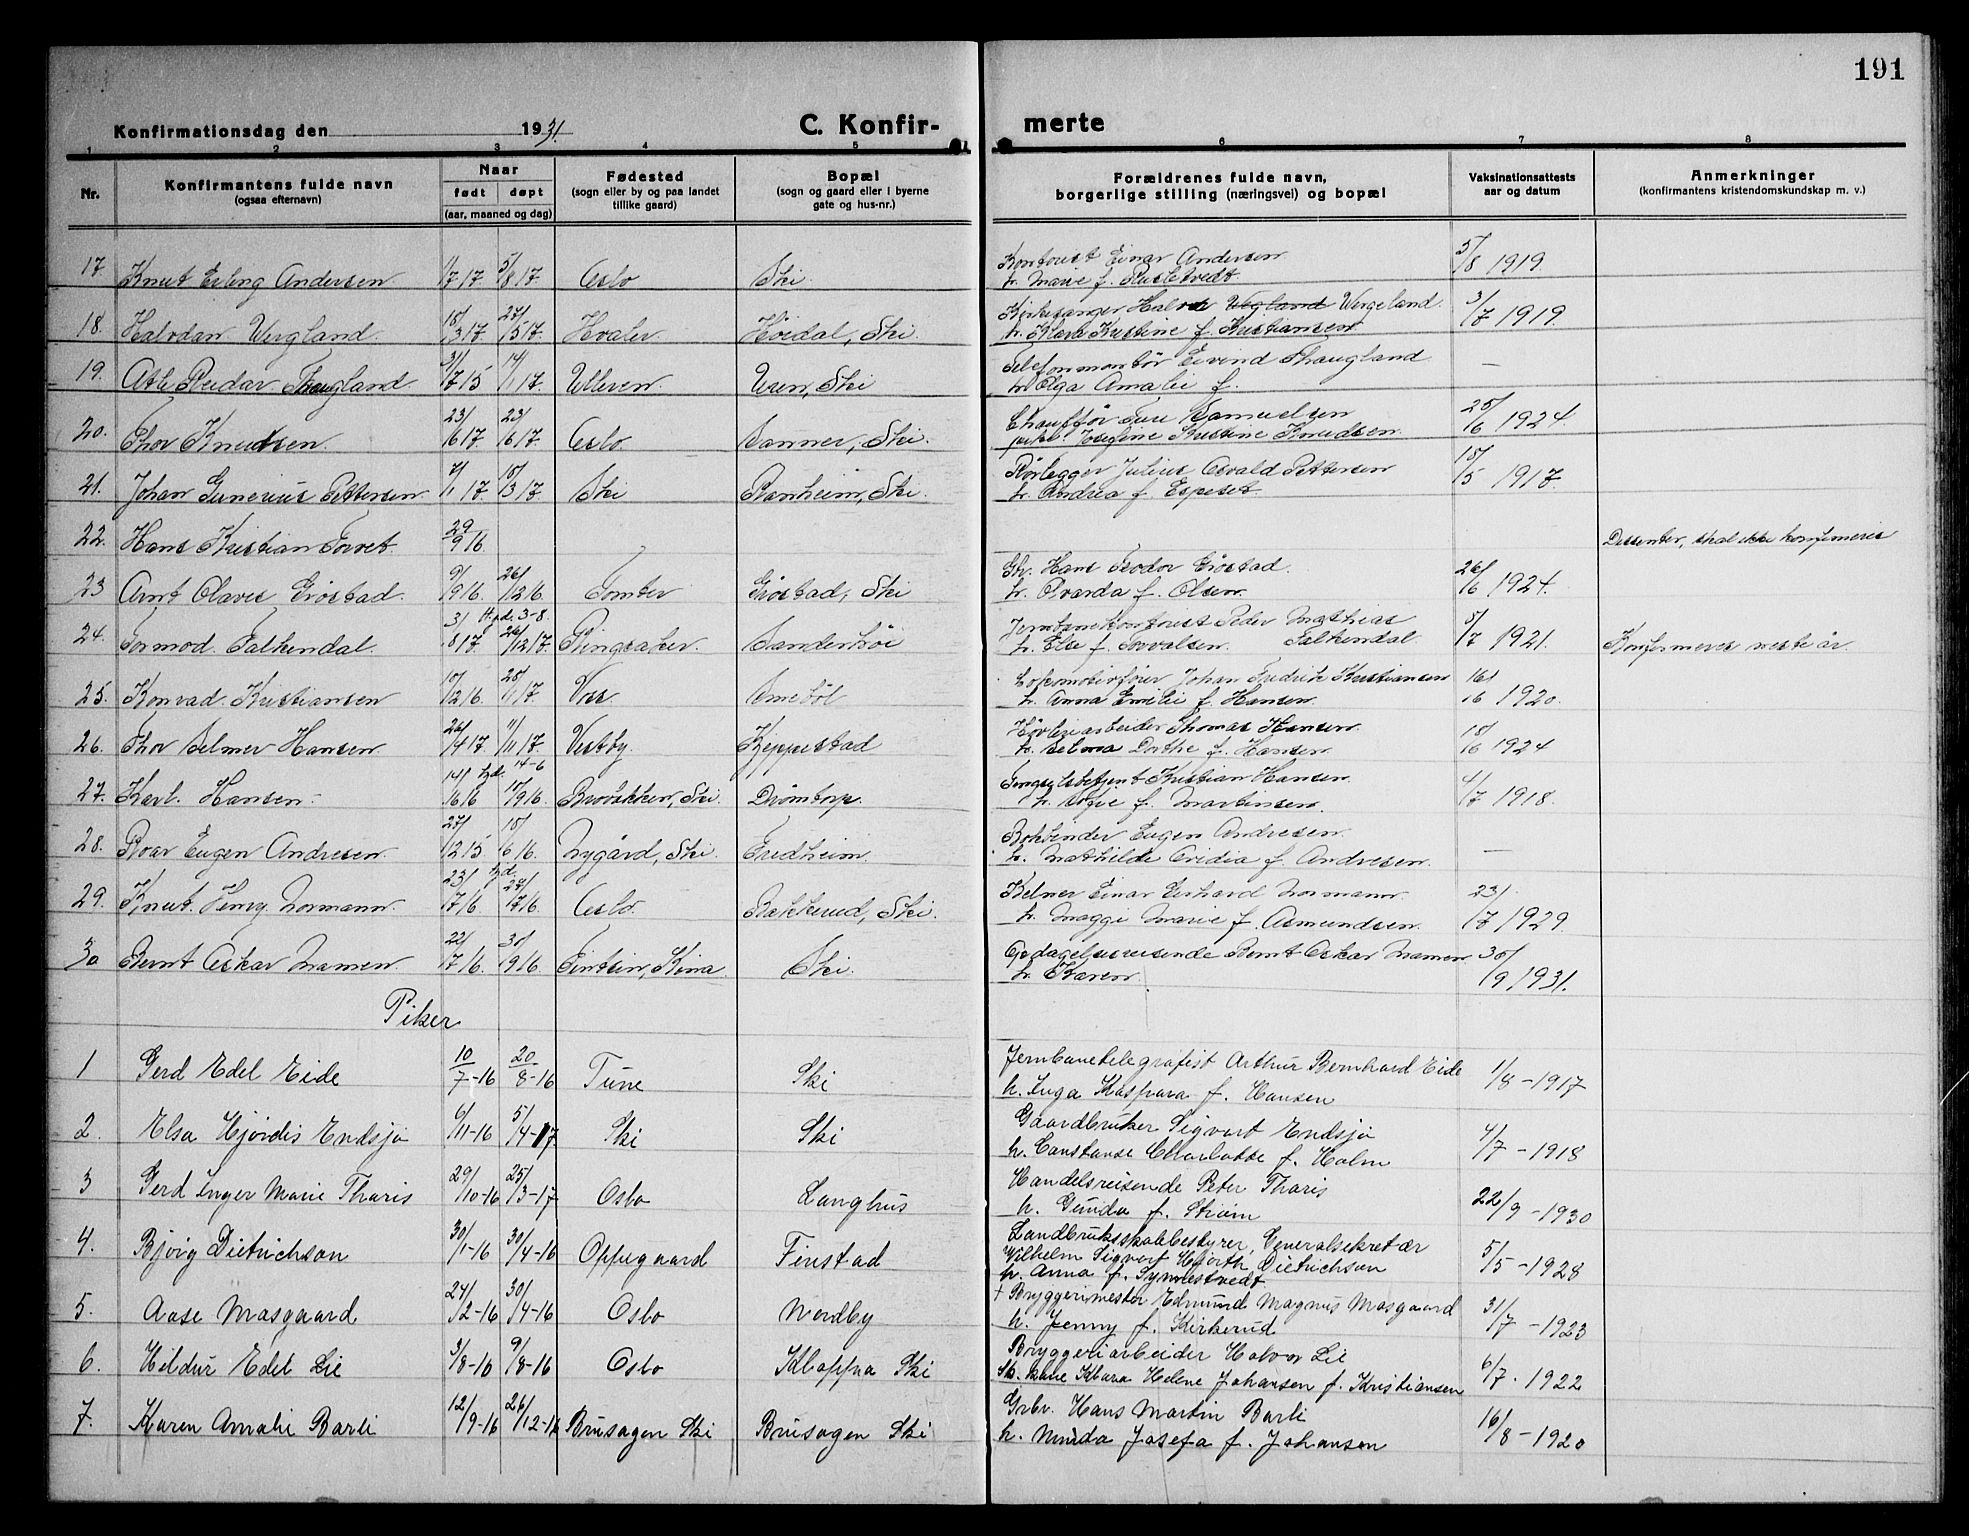 191
Konfirmationsdag den 1931.
C. Konfirmerte
1 2 3 4 5 6 7 8
Nr.
Konfirmantens fulde navn
(ogsaa efternavn)
Naar
født døpt
(aar, maaned og dag)
Fødested
(sogn eller by og paa landet
tillike gaard)
Bopæl
(sogn og gaard eller i byerne
gate og hus-nr.)
Forældrenes fulde navn,
borgerlige stilling (næringsvei) og bopæl
Vaksinationsattests
aar og datum
Anmerkninger
(konfirmantens kristendomskundskap m. v.)
17 Knut Erling Andersen 1/7 17 5/8 17 Oslo Ski Kontorist Einar Andersen 5/8 1919.
h. Marie f.
18. Halvdan Vergland. 18/3 17 27/5 17. Hvaler. Høidal, Ski. Kirkesanger Halvor Vergeland. 3/7 1919.
h. Klara Kristine f. Kristiansen
19. Atle Reidar Thaugland. 31/7 15 14/1 17. Ulleren. Uren, Ski Telefonmontør Eivind Thaugland —
h. Olga Amalie f.
20. Thor Knudsen. 23/6 17 23/6 17. Oslo. Sanner, Ski. Chauffør Ture Samuelsen 25/6 1924.
pike Josefine Kristine Knudsen.
21. Johan Gunerius Pettersen 7/1 17 18/3 17 Ski Ranheim, Ski. Rørlegger Julius Osvald Pettersen 18/5 1917.
h. Andrea f. Espeset.
22. Hans Kristian Torvet 29/9 16 Dissenter, skal ikke konfirmeres
23 Arnt Olaves Grøstad. 9/9 16. 26/12 16. Tomter Grøstad, Ski Gbr. Hans Teodor Grøstad. 26/6 1924.
h. Alvarda f. Olsen.
24. Tormod Falkendal. 3/8 17 Hjd. 3-8. 26/12 17. Ringsaker. Sanderhøi Jernbanekontorist Peder Mathias 5/7 1921. Konfirmeres neste år.
h. Else f. Torvalsen. Falkendal.
25. Konrad Kristiansen 10/12 16 28/1 17. Vss. Smebøl Lokomotivfører Johan Fredrik Kristiansen 16/6 1920.
h. Anna Emilie f. Hansen.
26. Thor Selmer Hansen 26/4 17 11/11 17. Vestby. Kjeppestad Høvleriarbeider Thomas Hansen. 18/6 1924
h. Selma Dorthe f. Hansen.
27. Karl Hansen. 14/6 16 hjd. 14-6 17/9 16. Ski. Drømtorp. Fengselsbetjent Kristian Hansen. 4/7 1918.
h. Signe f. Martinsen.
28. Roar Eugen Andresen. 27/12 15 18/6 16. Nygård, Ski. Fredheim. Bokbinder Eugen Andresen. —
h. Mathilde Ovidia f. Andresen.
29. Knut Henry Normann. 23/7 16. hjd. 27/7 16. Oslo. Bekkerud, Ski. Kelner Einar Gerhard Normann. 23/7 1929
h. Maggi Marie f. Asmundsen.
30 Bernt Oskar Namen. 22/7 16. 30/9 16. Tintsin, Kina. Ski. Opdagelsesreisende Bernt Oskar Namen 30/9 1931.
h. Karen.
Piker
1 Gerd Edel Eide 10/7-16 20/8-16 Tune Ski Jernbanetelegrafist Arthur Bernhard Eide 1/8-1917
h. Inga Kaspara f. Hansen
2. Elsa Hjørdis Endsjø 6/11-16 5/4-17 Ski Ski Gaardbruker Sigvart Endsjø 4/7-1918
h. Constanse Charlotte f. Holm
3 Gerd Inger Marie Tharis 29/10-16 25/3-17 Oslo Langhus Handelsreisende Peter Tharis 22/9-1930
h. Gunda f. Strøm
4. Bjørg Dietrichson 30/1-16 30/4-16 Oppegaard Finstad Landbruksskolebestyrer, Generalsekretær 5/5-1928
Wilhelm Sigvart Hjorth Dietrichson
h. Anna f. Synnestvedt
5. Aase Mosgaard 24/2-16 30/4-16 Oslo Nordby + Bryggerimester Edmund Magnus Mosgaard 31/7-1923
h. Jenny f. Kirkerud
6. Hildur Edel Lie 3/8-16 9/8-16 Oslo Kloppna Ski Bryggeriarbeider Halvor Lie 6/7. 1922
Klara Helene Johansen f. Kristiansen
7. Karen Amalie Barli 12/9-16 26/12-16 Brusagen Ski Brusagen Ski Grbr. Hans Martin Barli 16/8-1920
h. Minda Josefa f. Johansen